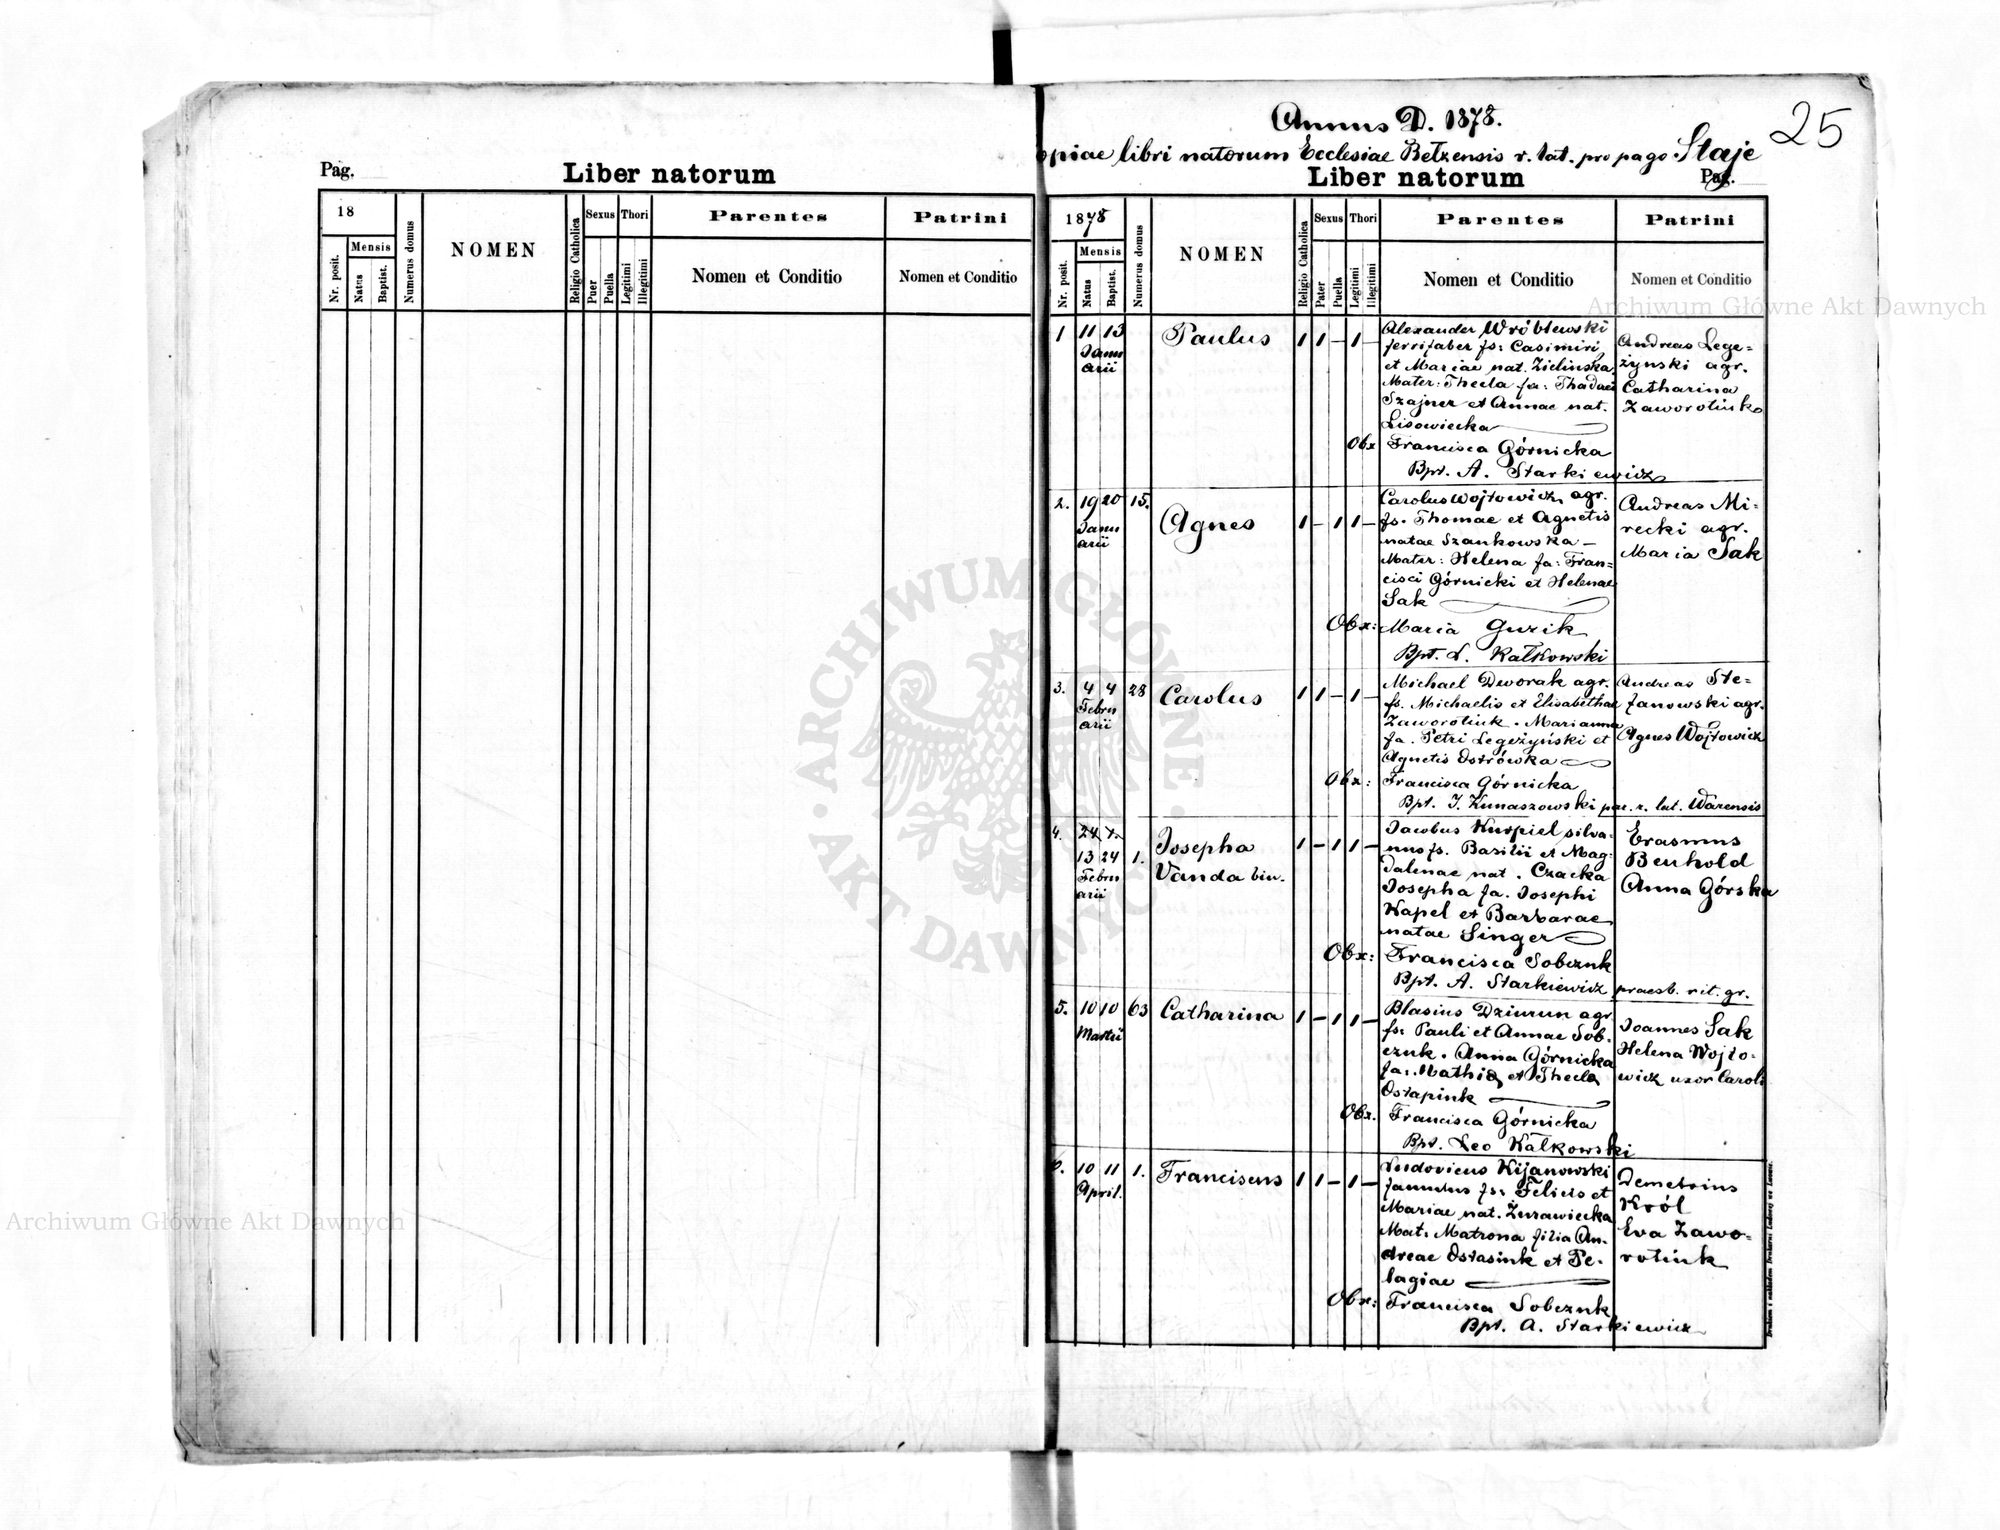 Pag.
Liber natorum
18
Nr. posit.
Mensis
Natus
Baptist.
Numerus domus
NOMEN
Religio Catholica
Sexus
Puer
Puella
Thori
Legitimi
Illegitimi
Parentes
Nomen et Conditio
Patrini
Nomen et Conditio
Annus D. 1878.
25
opiae libri natorum Ecclesiae Bełzensis r. lat. pro pago Staje
Liber natorum
Pag.
1878
Nr. posit.
Mensis
Natus
Baptist.
Numerus domus
NOMEN
Religio Catholica
Sexus
Puer
Puella
Thori
Legitimi
Illegitimi
Parentes
Nomen et Conditio
Patrini
Nomen et Conditio
1 11 13 Paulus 1 1 – 1 –
Janu
arii
Alexander Wróblewski
ferrifaber fs: Casimiri
et Mariae nat. Zielinska
Mater: Thecla fa: Thadaei
Szajner et Annae nat.
Lisowiecka
Obx Francisca Górnicka
Bpt. A. Starkiewicz
Andreas Lege=
żynski agr.
Catharina
Zaworotiuk
2. 19 20 15. Agnes 1 – 1 1 –
Janu
arii
Carolus Wojtowicz agr.
fs. Thomae et Agnetis
natae Szankowska –
Mater: Helena fa: Fran=
cisci Górnicki et Helenae
Sak
Obx: Maria Guzik
Bpt. L. Kałkowski
Andreas Mi=
recki agr.
Maria Sak
3. 4 4 28 Carolus 1 1 – 1 –
Febru
arii
Michael Dworak agr.
fs. Michaelis et Elisabethae
Zaworotiuk. Marianna
fa. Petri Legeżyński et
Agnetis Ostrówka
Obx: Francisca Górnicka
Bpt. J. Kunaszowski par. r. lat. Warensis
Andreas Ste=
fanowski agr.
Agnes Wojtowicz
4. 13 24 1. Josepha 1 – 1 1 –
Febru
arii
Vanda bin.
Jacobus Kurpiel silva=
nus fs. Basilii et Mag=
dalenae nat. Czacka
Josepha fa. Josephi
Kapel et Barbarae
natae Singer
Obx: Francisca Sobczuk
Bpt. A. Starkiewicz praesb. rit. gr.
Erasmus
Benhold
Anna Górska
5. 10 10 63 Catharina 1 – 1 1 –
Martii
Blasius Dziurun agr.
fs: Pauli et Annae Sob=
czuk. Anna Górnicka
fa: Mathia et Thecla
Ostapiuk
Obx. Francisca Górnicka
Bpt. Leo Kałkowski
Joannes Sak
Helena Wojto=
wicz uxor Caroli
6. 10 11 1. Franciscus 1 1 – 1 –
April.
Ludovicus Kijanowski
famulus fs: Felicis et
Mariae nat. Żurawiecka
Mat: Matrona filia An=
dreae Ostasiuk et Pe=
lagiae
Obx: Francisca Sobczuk
Bpt. A. Starkiewicz
Demetrius
Król
Eva Zawo=
rotiuk
Archiwum Główne Akt Dawnych
Archiwum Główne Akt Dawnych
ARCHIWUM GŁÓWNE AKT DAWNYCH